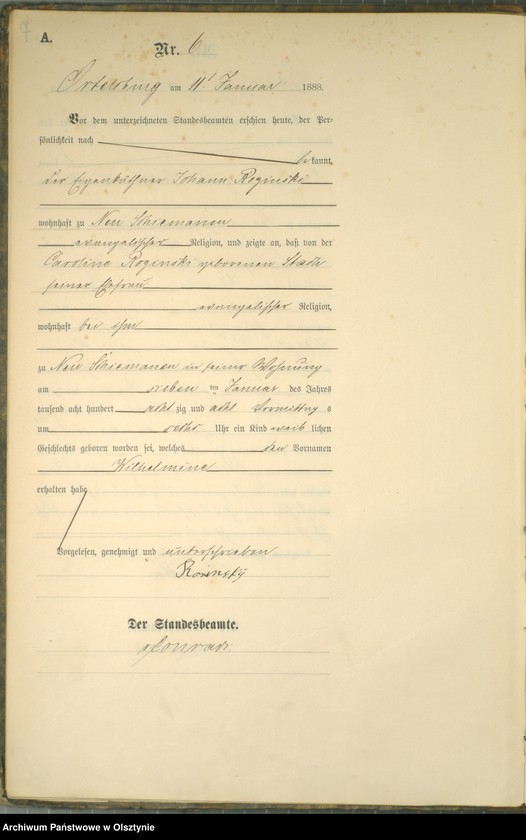 A.
Nr. 6
Ortelsburg am 11t Januar 1888.
Vor dem unterzeichneten Standesbeamten erschien heute, der Per-
sönlichkeit nach
bekannt,
der Eigenkäthner Johann Roginski
wohnhaft zu Neu Schiemanen
evangelischer Religion, und zeigte an, daß von der
Caroline Roginski geborenen
seiner Ehefrau
evangelischer Religion,
wohnhaft bei ihm
zu Neu Schiemanen in seiner Wohnung
am sieben ten Januar des Jahres
tausend acht hundert acht zig und acht Vormittag s
um sechs Uhr ein Kind weib lichen
Geschlechts geboren worden sei, welches den Vornamen
Wilhelmine
erhalten habe
Vorgelesen, genehmigt und unterschrieben
Der Standesbeamte.
Conradi
Archiwum Państwowe w Olsztynie